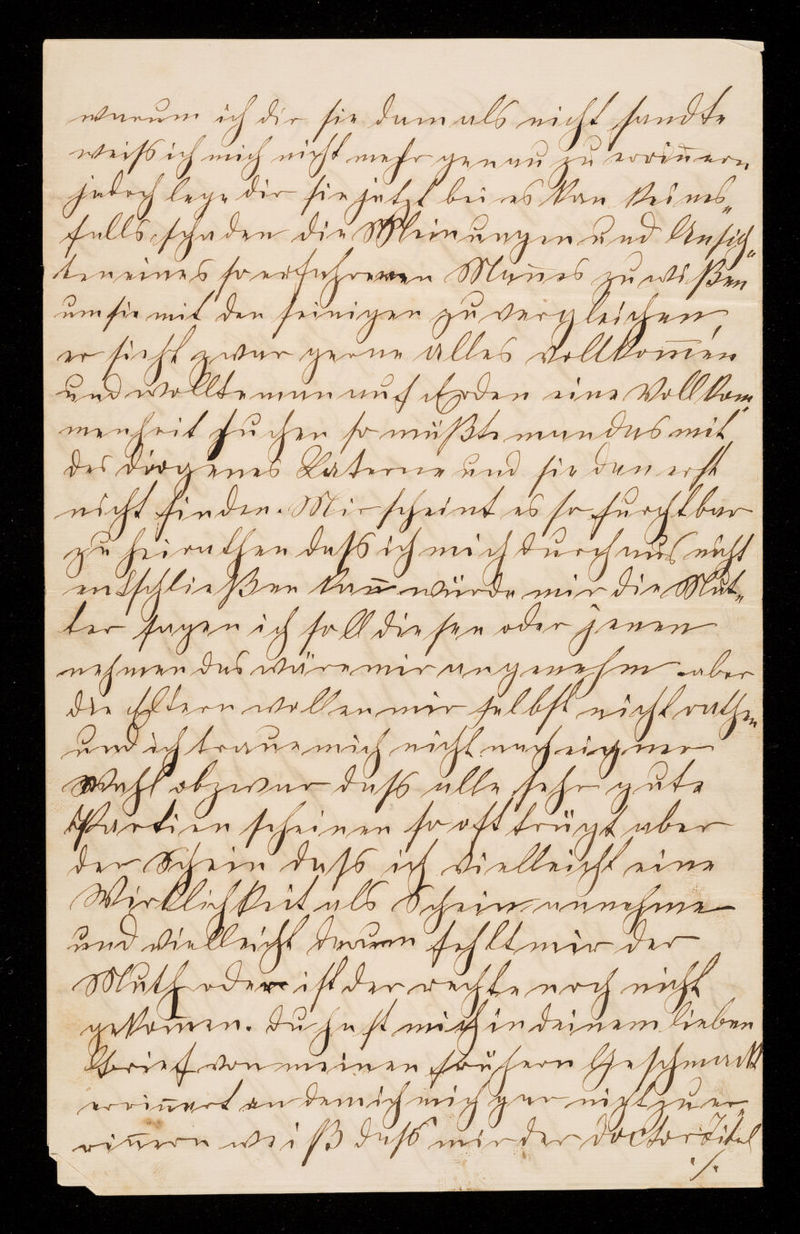 warum ich dir sie damals nicht sandte
weiß ich mich nicht mehr genau zu erriñern
jedoch lege dir sie jetzt bei es kan keines„
falls schaden die Meinungen und Ansich„
ten eines so erfahrenen Mañes zu wißen
um sie mit den seinigen zu vergleichen,
er sieht zwar gerne alles vollkom̄en
und wollte man auf Erden eine Vollkom„
menheit suchen so müßte man das mit
des Diogenes Laterne und sie dan erst
nicht finden. Mir scheint es so furchtbar
zu heirathen daß ich mich durchaus nicht
entschließen kañ würde mir die Mut„
ter sagen ich soll diesen oder jenen
nehmen das wäre mir angenehm aber
die Eltern wollen mir selbst nicht rathen
und ich traue mich nicht nach eigner
Wahl obzwar daß alle sehr gute
Partien scheinen so oft trügt aber
der Schein daß ich vielleicht eine
Wirklichkeit als Schein annehme
und vielleicht darum fehlt mir der
Muth oder ist der rechte noch nicht
gekom̄en. Du hast mich in deinem lieben
Brief von meinen frühern Geschmack
erriñert an dem ich mich gar nicht zu er„
riñern weiß daß mir der Doctor Titel
./.